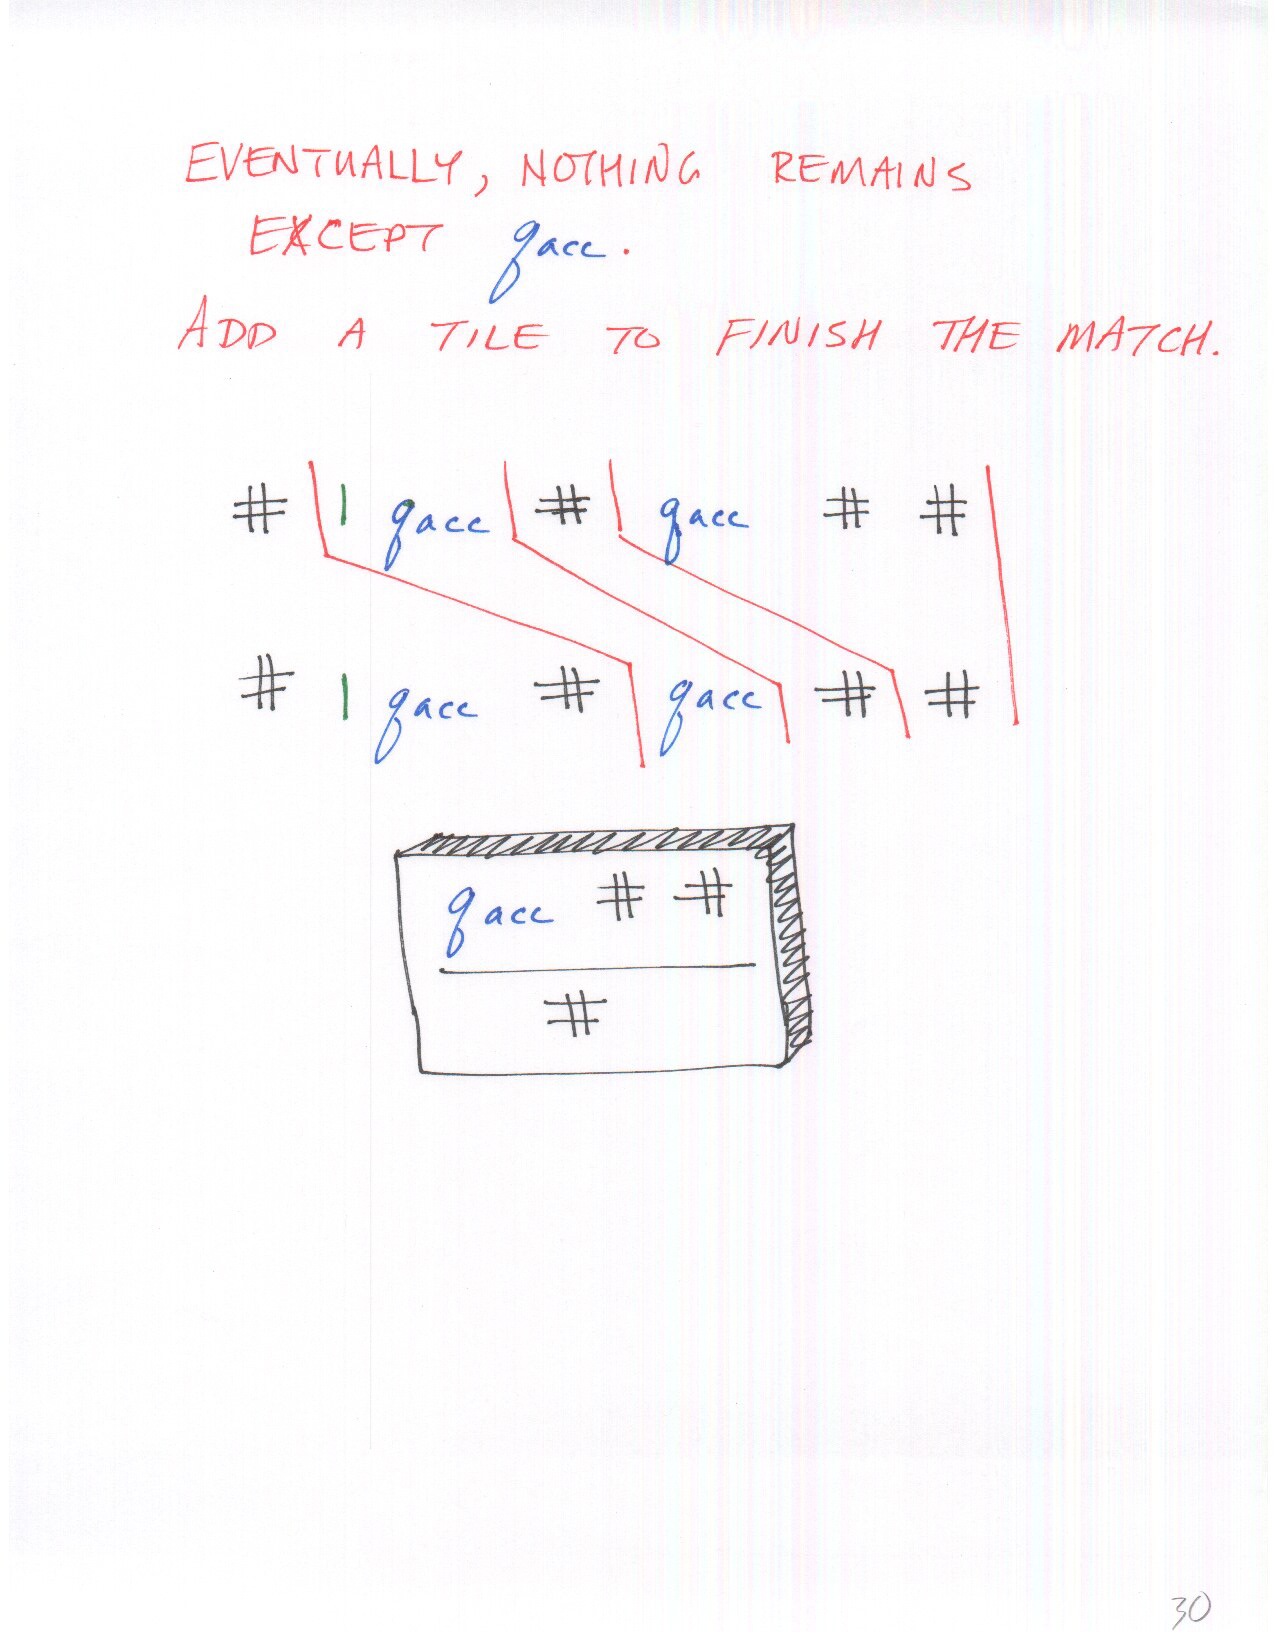 EVENTUALLY, NOTHING REMAINS
EXCEPT qacc.
ADD A TILE TO FINISH THE MATCH.
# 1 qacc # qacc # #
# 1 qacc # qacc # #
qacc # #
#
30